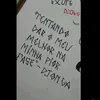 ESCUTE
"TENTANDO
DAR O MEU
MELHOR NA
MINHA PIOR
FASE" DJONGA